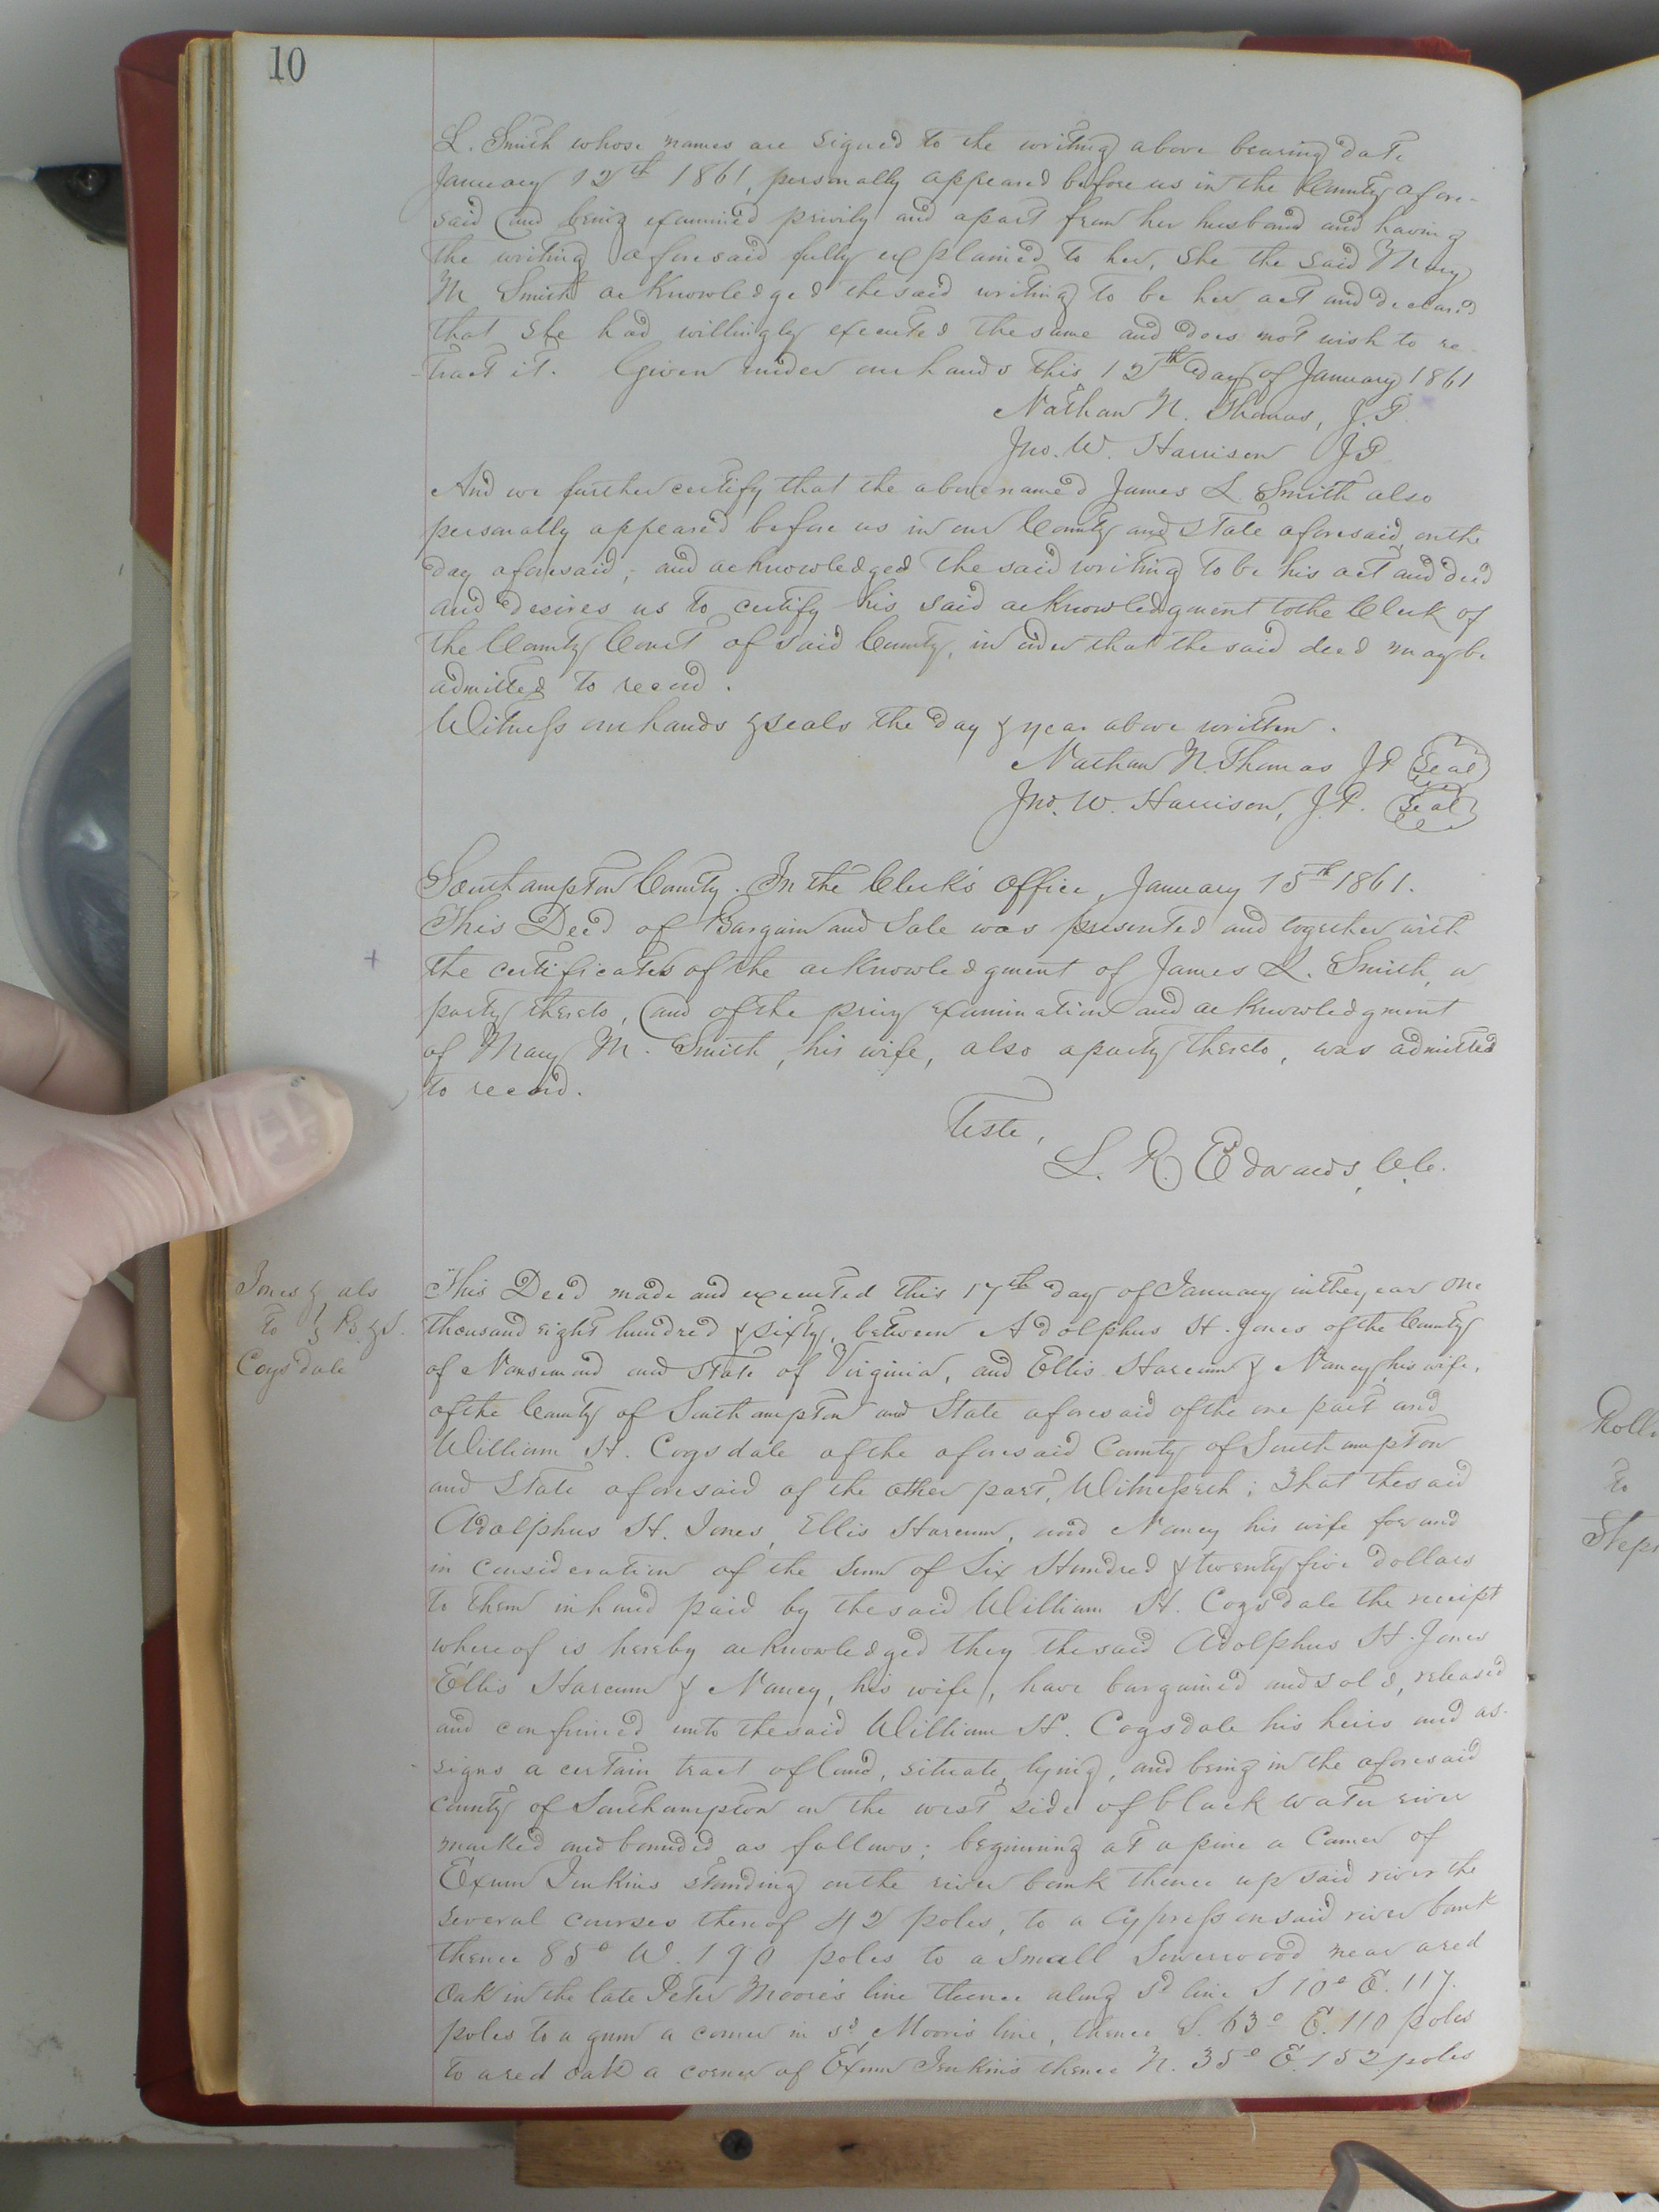 10
L. Smith whose names are signed to the writing above bearing date
January 12th 1861, personally appeared before us in the County afore-
said and being examined privily and apart from her husband and having
the writing aforesaid fully explained to her, she the said Mary
M Smith acknowledged the said writing to be her act and declared
that she had willingly executed the same and does not wish to re
-tract it. Given under our hands this 12th day of January 1861
Nathan N. Thomas, J.P.
Jno. W. Harrison JP
And we further certify that the above named James L. Smith also
personally appeared before us in our County and State aforesaid, on the
day aforesaid; and acknowledged the said writing to be his act and deed
and desires us to certify his said acknowledgment to the Clerk of
the County Court of said County, in order that the said deed may be
admitted to record.
Witness our hands & seals the day & year above written.
Nathan N. Thomas JP Seal
Jno. W. Harrison, J.P. Seal
Southampton County. In the Clerk's Office, January 15th 1861.
This Deed of Bargain and Sale was presented and together with
the certificates of the acknowledgment of James L. Smith, a
party thereto, and of the privy examination and acknowledgment
of Mary M. Smith, his wife, also a party thereto, was admitted
to record.
Teste,
L. R. Edwards, C.C.
Jones & als
to } B. & S.
Cogsdale
This Deed made and executed this 17th day of January in the year one
thousand eight hundred & sixty, between Adolphus H. Jones of the County
of Nansemond and State of Virginia, and Ellis Harcum & Nancy, his wife,
of the County of Southampton and State aforesaid of the one part and
William H. Cogsdale of the aforesaid County of Southampton
and State aforesaid of the other part, Witnesseth; That the said
Adolphus H. Jones, Ellis Harcum, and Nancy his wife for and
in consideration of the sum of Six Hundred & twenty five dollars
to them in hand paid by the said William H. Cogsdale the receipt
whereof is hereby acknowledged they the said Adolphus H. Jones
Ellis Harcum & Nancy, his wife, have bargained and sold, released
and confirmed unto the said William H. Cogsdale his heirs and as-
signs a certain tract of land, situate, lying, and being in the aforesaid
County of Southampton on the west side of black water river
marked and bounded as follows; beginning at a pine a Corner of
Exum Jenkins standing on the river bank thence up said river the
several courses thereof 42 poles, to a Cypress on said river bank
thence 85° W. 190 poles to a small Sowerwood near a red
Oak in the late Peter Moore's line thence along sd line S 10° E. 117.
poles to a gum a corner in sd Moore's line, thence S. 63° E. 110 poles
to a red oak a corner of Exum Jenkins thence N. 35° E. 152 poles
Rolli
to
Step